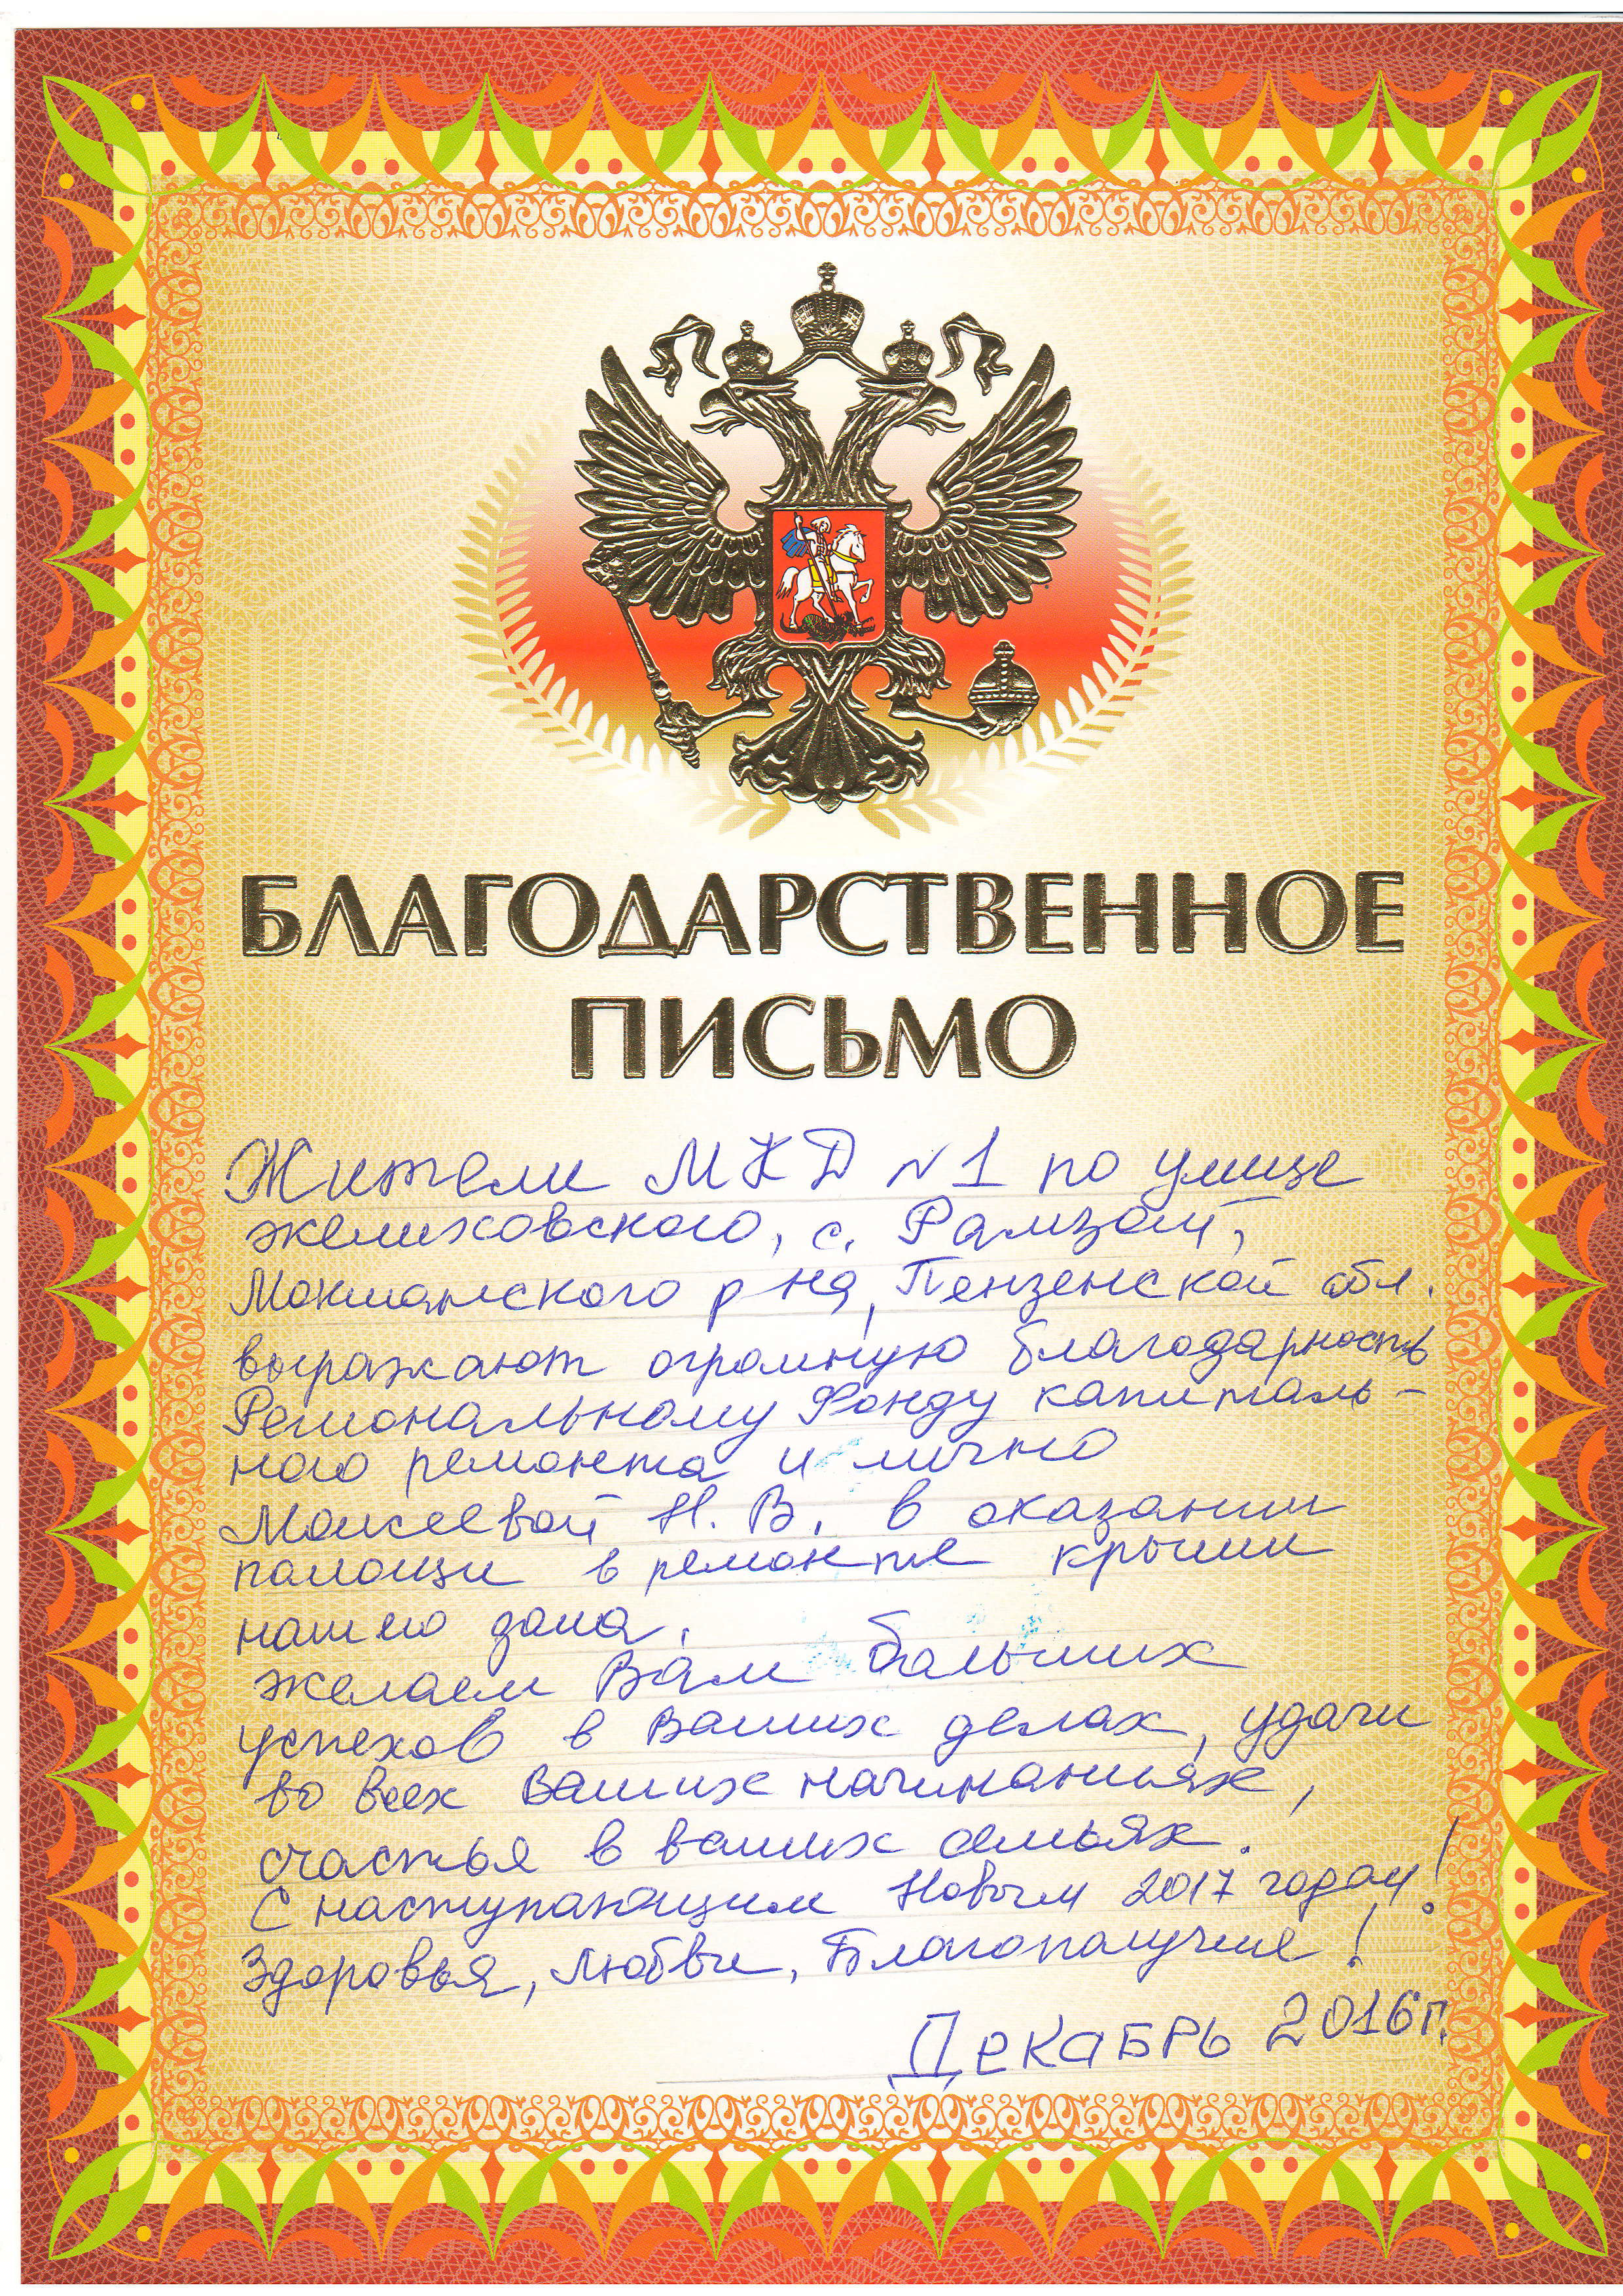 БЛАГОДАРСТВЕННОЕ
ПИСЬМО
Жители МКД №1 по улице
Желиховского, с. Рамзай,
Мокшанского р на, Пензенской обл.
выражают огромную благодарность
Региональному Фонду капиталь-
ного ремонта и лично
Моисеевой Н. В. в оказании
помощи в ремонте крыши
нашего дома.
Желаем Вам больших
успехов в Ваших делах, удачи
во всех Ваших начинаньях,
счастья в ваших семьях.
С наступающим Новым 2017 годом!
Здоровья, Любви, Благополучие!
ДЕКАБРЬ 2016г.